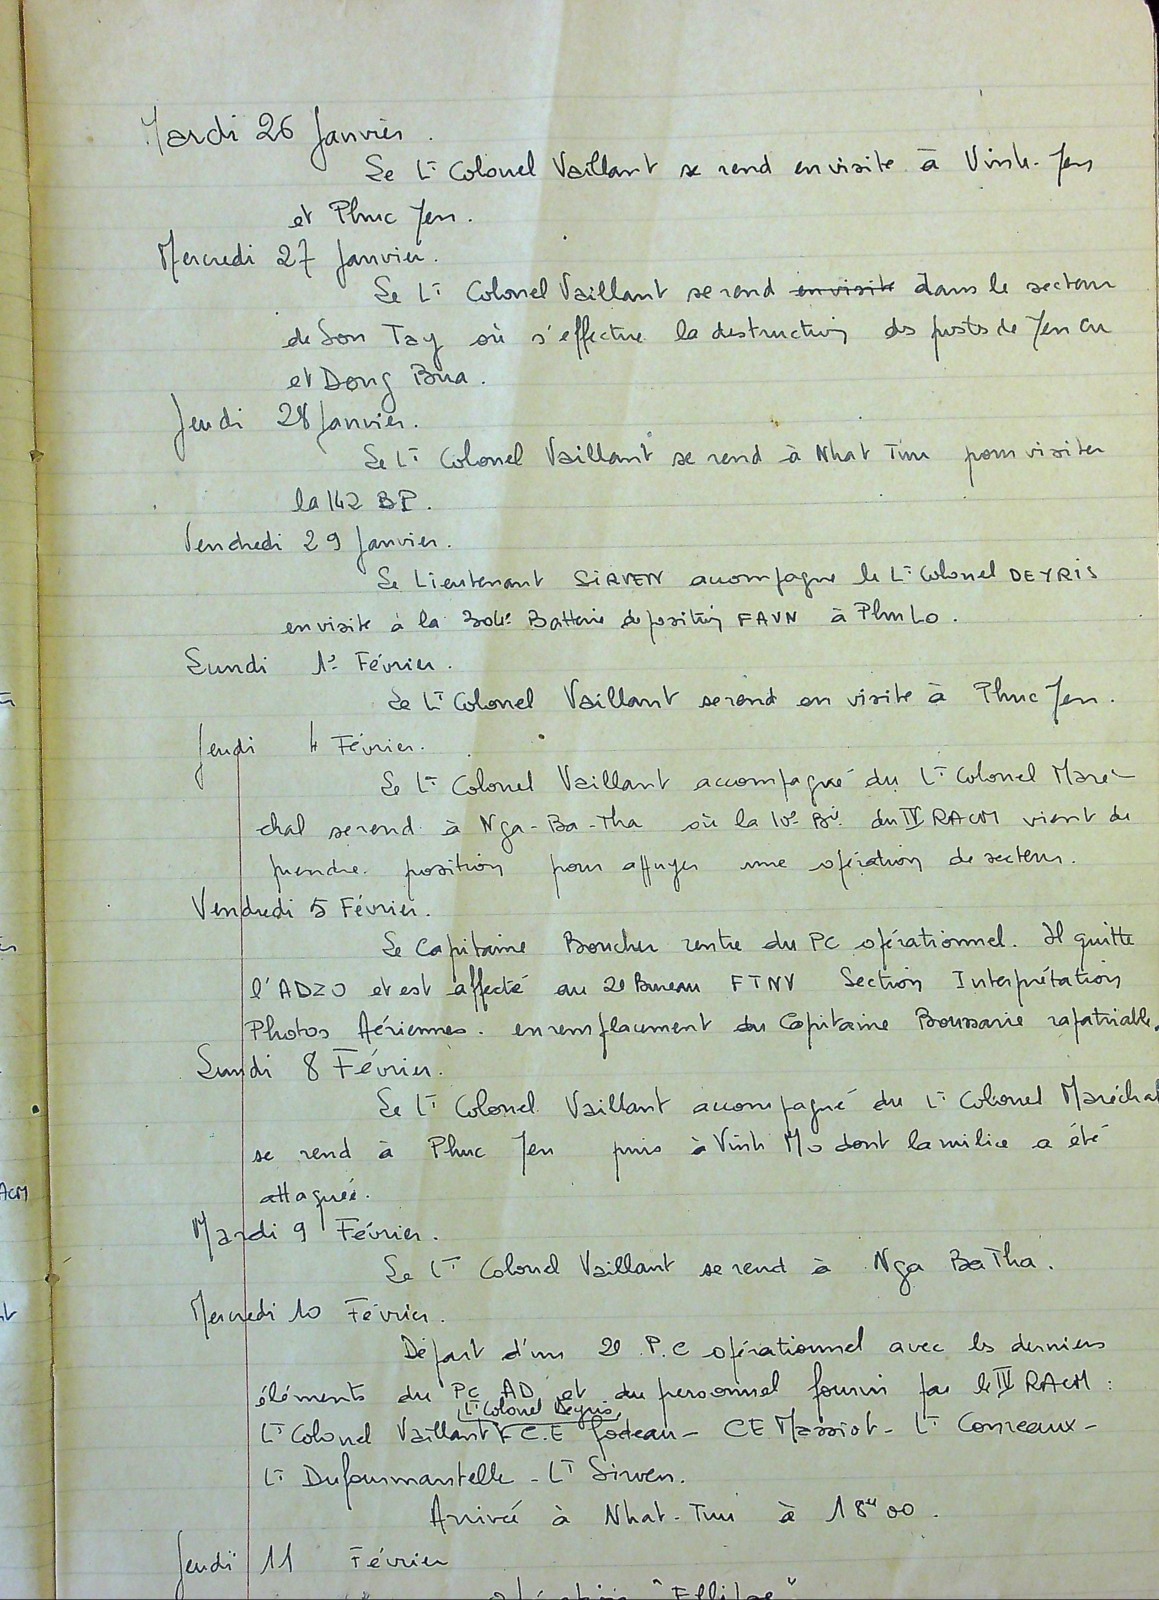 Mardi 26 Janvier.
Le Lt Colonel Vaillant se rend en visite à Vinh-Yen
et Phuc Yen.
Mercredi 27 Janvier.
Le Lt Colonel Vaillant se rend en visite dans le secteur
de Son Tay où s'effectue la destruction des postes de Yen Cu
et Dong Bua.
Jeudi 28 Janvier.
Le Lt Colonel Vaillant se rend à Nhat Tuu pour visiter
la 142 BP.
Vendredi 29 Janvier.
Le Lieutenant SIRVEN accompagne le Lt Colonel DEYRIS
en visite à la 304e Batterie de position FAVN à Phu Lo.
Lundi 1er Février.
Le Lt Colonel Vaillant se rend en visite à Phuc Yen.
Jeudi 4 Février.
Le Lt Colonel Vaillant accompagné du Lt Colonel Maré-
chal se rend à Nga-Ba-Tha où la 10e Bie du IV RACM vient de
prendre position pour appuyer une opération de secteur.
Vendredi 5 Février.
Le Capitaine Boucher rentre du PC opérationnel. Il quitte
l'ADZO et est affecté au 2e Bureau FTNV Section Interprétation
Photos Aériennes. en remplacement du Capitaine Boussarie rapatriable.
Lundi 8 Février.
Le Lt Colonel Vaillant accompagné du Lt Colonel Maréchal
se rend à Phuc Yen puis à Vinh Mo dont la milice a été
attaquée.
Mardi 9 Février.
Le Lt Colonel Vaillant se rend à Nga Ba Tha.
Mercredi 10 Février.
Départ d'un 2e P.C opérationnel avec les derniers
éléments du PC AD et du personnel fourni par le IV RACM :
Lt Colonel Deyris,
Lt Colonel Vaillant C.E Godeau - CE Massiot - Lt Conreaux -
Lt Dufourmantelle - Lt Sirven.
Arrivée à Nhat-Tuu à 18H00.
Jeudi 11 Février
Opération "Ellipse"